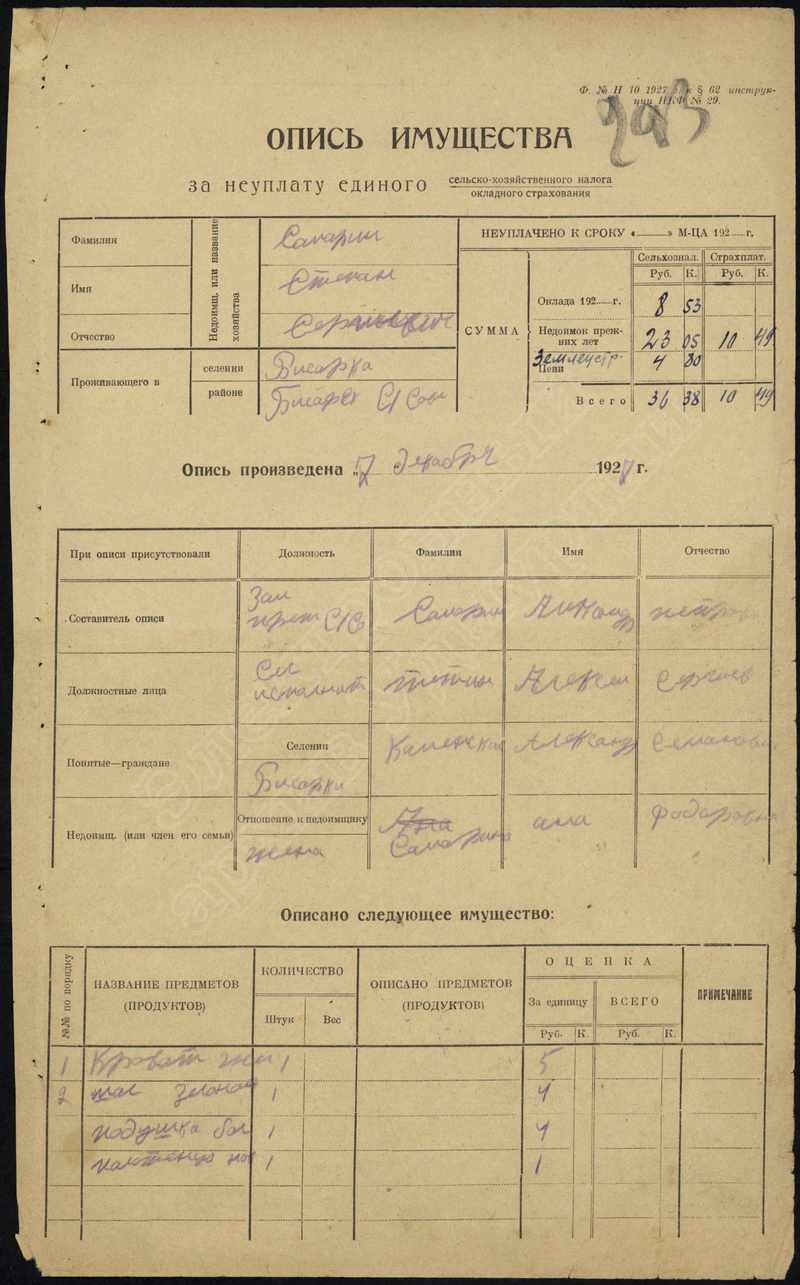 Ф. № Н 10 1927 к § 62 инструк-
ции НКФ № 29.
ОПИСЬ ИМУЩЕСТВА
за неуплату единого сельско-хозяйственного налога
окладного страхования
Недоимщ. или название хозяйства
Фамилия Самарин
Имя Степан
Отчество
Проживающего в
селении Бисарка
районе
НЕУПЛАЧЕНО К СРОКУ «——» М-ЦА 192 — г.
СУММА
Сельхознал. Страхплат.
Руб. К. Руб. К.
Оклада 192 — г. 8 53
Недоимок преж-
них лет 23 05 10 49
Землеустр.
Пени 4 80
Всего 36 38 10 49
Опись произведена „7 декабря 1927 г.
При описи присутствовали Должность Фамилия Имя Отчество
Составитель описи Зам С/С Самарин
Должностные лица Алексей Сергеев
Понятые—граждане Селения
Бисарки
Недоимщ. (или член его семьи) Отношение к недоимщику
жена Самарина Фадаровна
Описано следующее имущество:
№№ по порядку
НАЗВАНИЕ ПРЕДМЕТОВ
(ПРОДУКТОВ)
КОЛИЧЕСТВО
Штук Вес
ОПИСАНО ПРЕДМЕТОВ
(ПРОДУКТОВ)
ОЦЕНКА
За единицу ВСЕГО
Руб. К. Руб. К.
ПРИМЕЧАНИЕ
1 Кроват 1 5
2 1 4
подушка 1 4
1 1